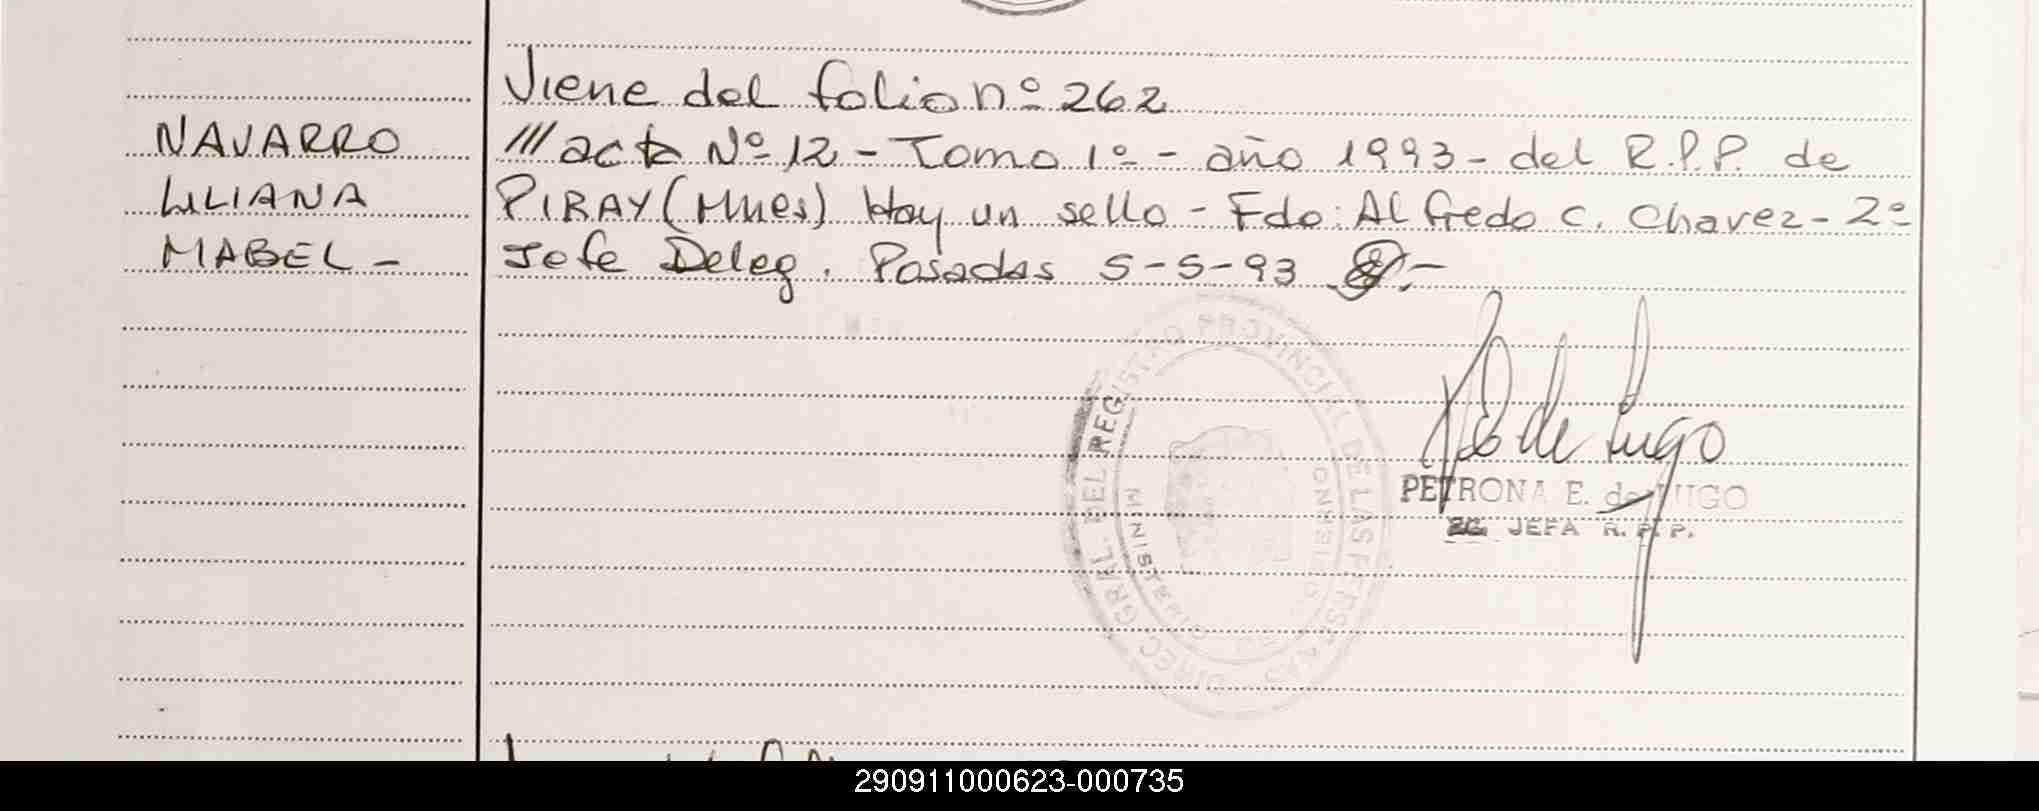 NAVARRO
LILIANA
MABEL -
Viene del folio nº 262
/// acta Nº 12 - Tomo 1º - año 1993 - del R.P.P. de
PIRAY (Mnes) Hay un sello - Fdo: Alfredo C. Chavez - 2º
Jefe Deleg. Posadas 5-5-93
DIREC. GRAL. DEL REGISTRO PROVINCIAL DE LAS PERSONAS
MINISTERIO GOBIERNO
de Lugo
PETRONA E. de LUGO
JEFA R. P. P.
290911000623-000735